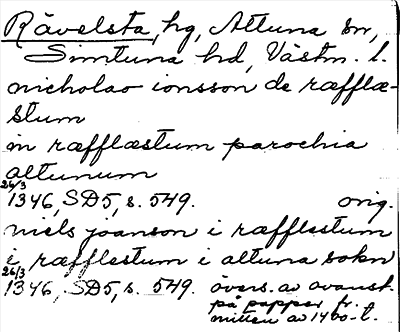 Rävelsta, hg, Altuna sn,
Simtuna hd, Västm. l.
nicholao ionsson de ræfflæ-
stum
in ræfflæstum parochia
altunum
26/3
1346, SD5, s. 549. orig.
niels joanson i ræfflestum
i ræfflestum i altuna sokn
26/3
1346, SD5, s. 549. övers. av avanst.
på papper fr.
mitten av 1400-t.